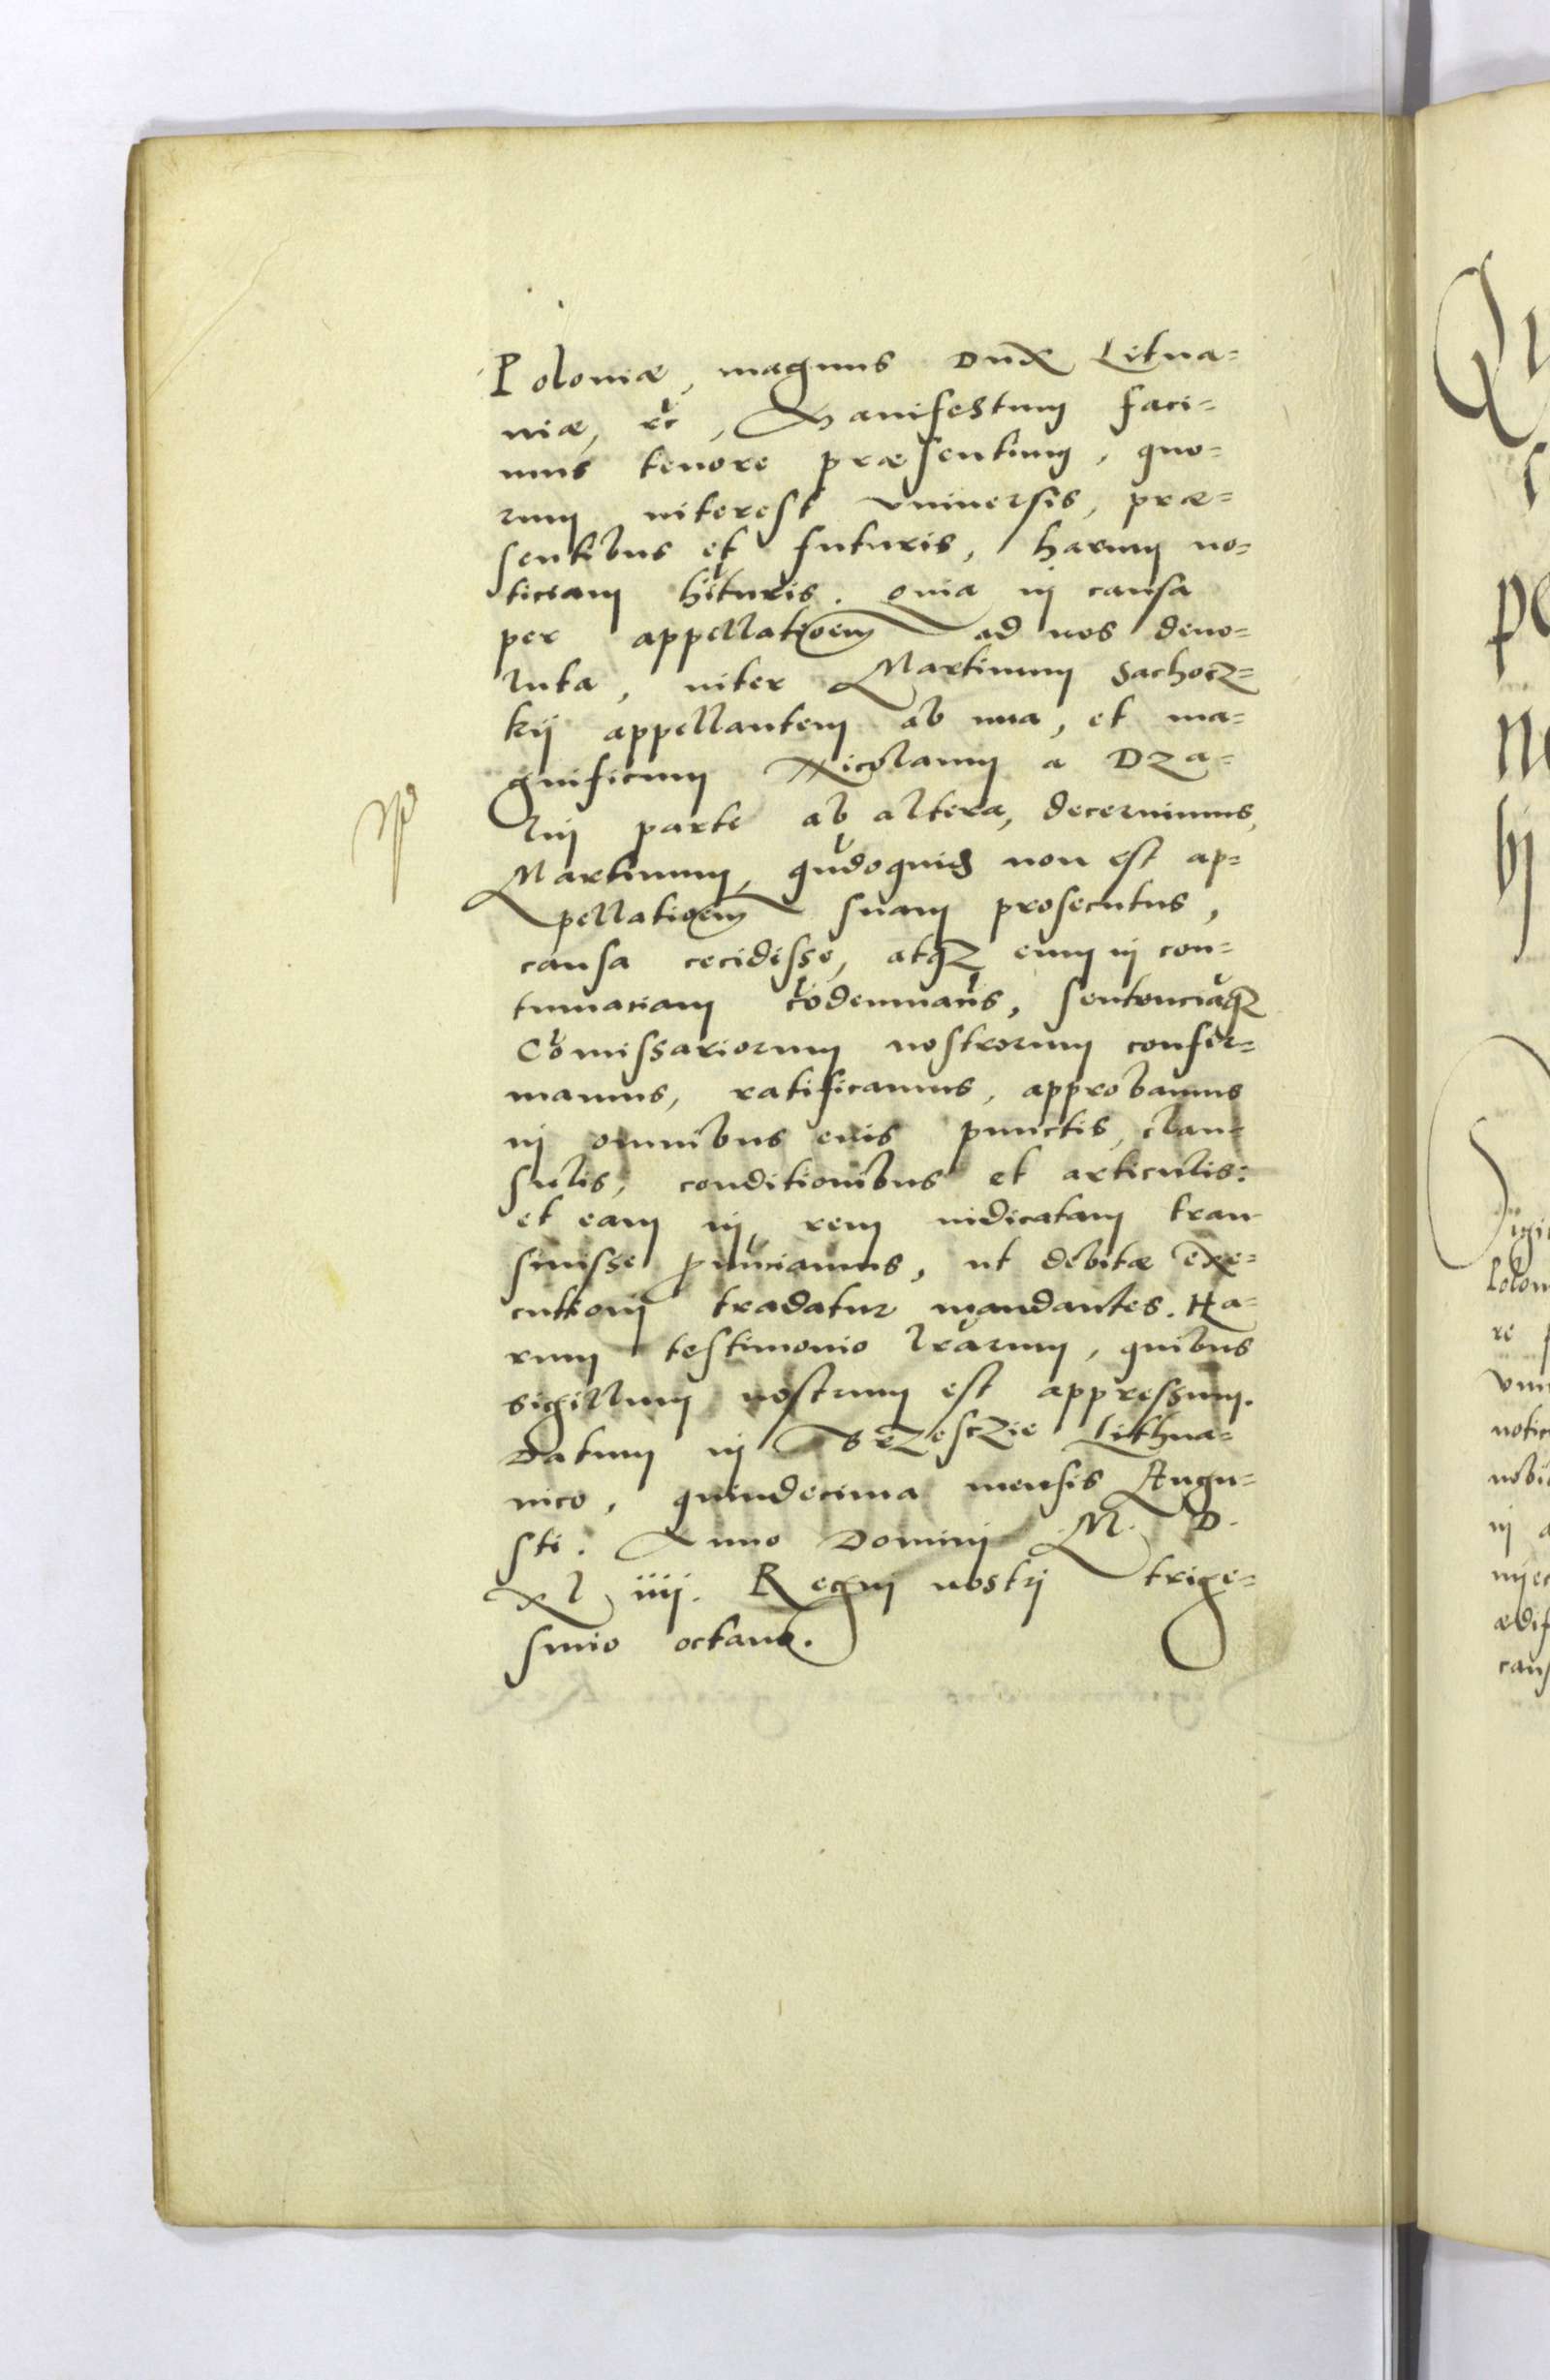 Poloniæ, magnus Dux Litua=
niæ, &c, Manifestum faci=
mus tenore præsentium, quo=
rum interest vniuersis, præ=
sentibus et futuris, harum no=
ticiam hituris. Quia in causa
per appellatioem ad nos deuo=
luta, inter Martinum Sachocz=
kij appellantem ab una, et ma=
gnificum Nicolaum a Dza=
lin parte ab altera, decernimus,
Martinum, qudoquid non est ap=
pellatioem suam prosecutus,
causa cecidisse, atqz eum in con=
tumaciam codemnaus, sentenciaqz
Comissariorum nostrorum confir=
mamus, ratificamus, approbamus
in omnibus eius punctis, clau=
sulis, conditionibus et articulis:
et eam in rem iudicatam tran
siuisse pnunciamus, ut debitæ exe=
cutioni tradatur mandantes. Ha=
rum testimonio lrarum, quibus
sigillum nostrum est appressum.
Datum in Brzesczie Lithua=
nico, quindecima mensis Augu=
sti. Anno Domini M. D.
XL iiij. Regni nostri trige=
simo octauo.